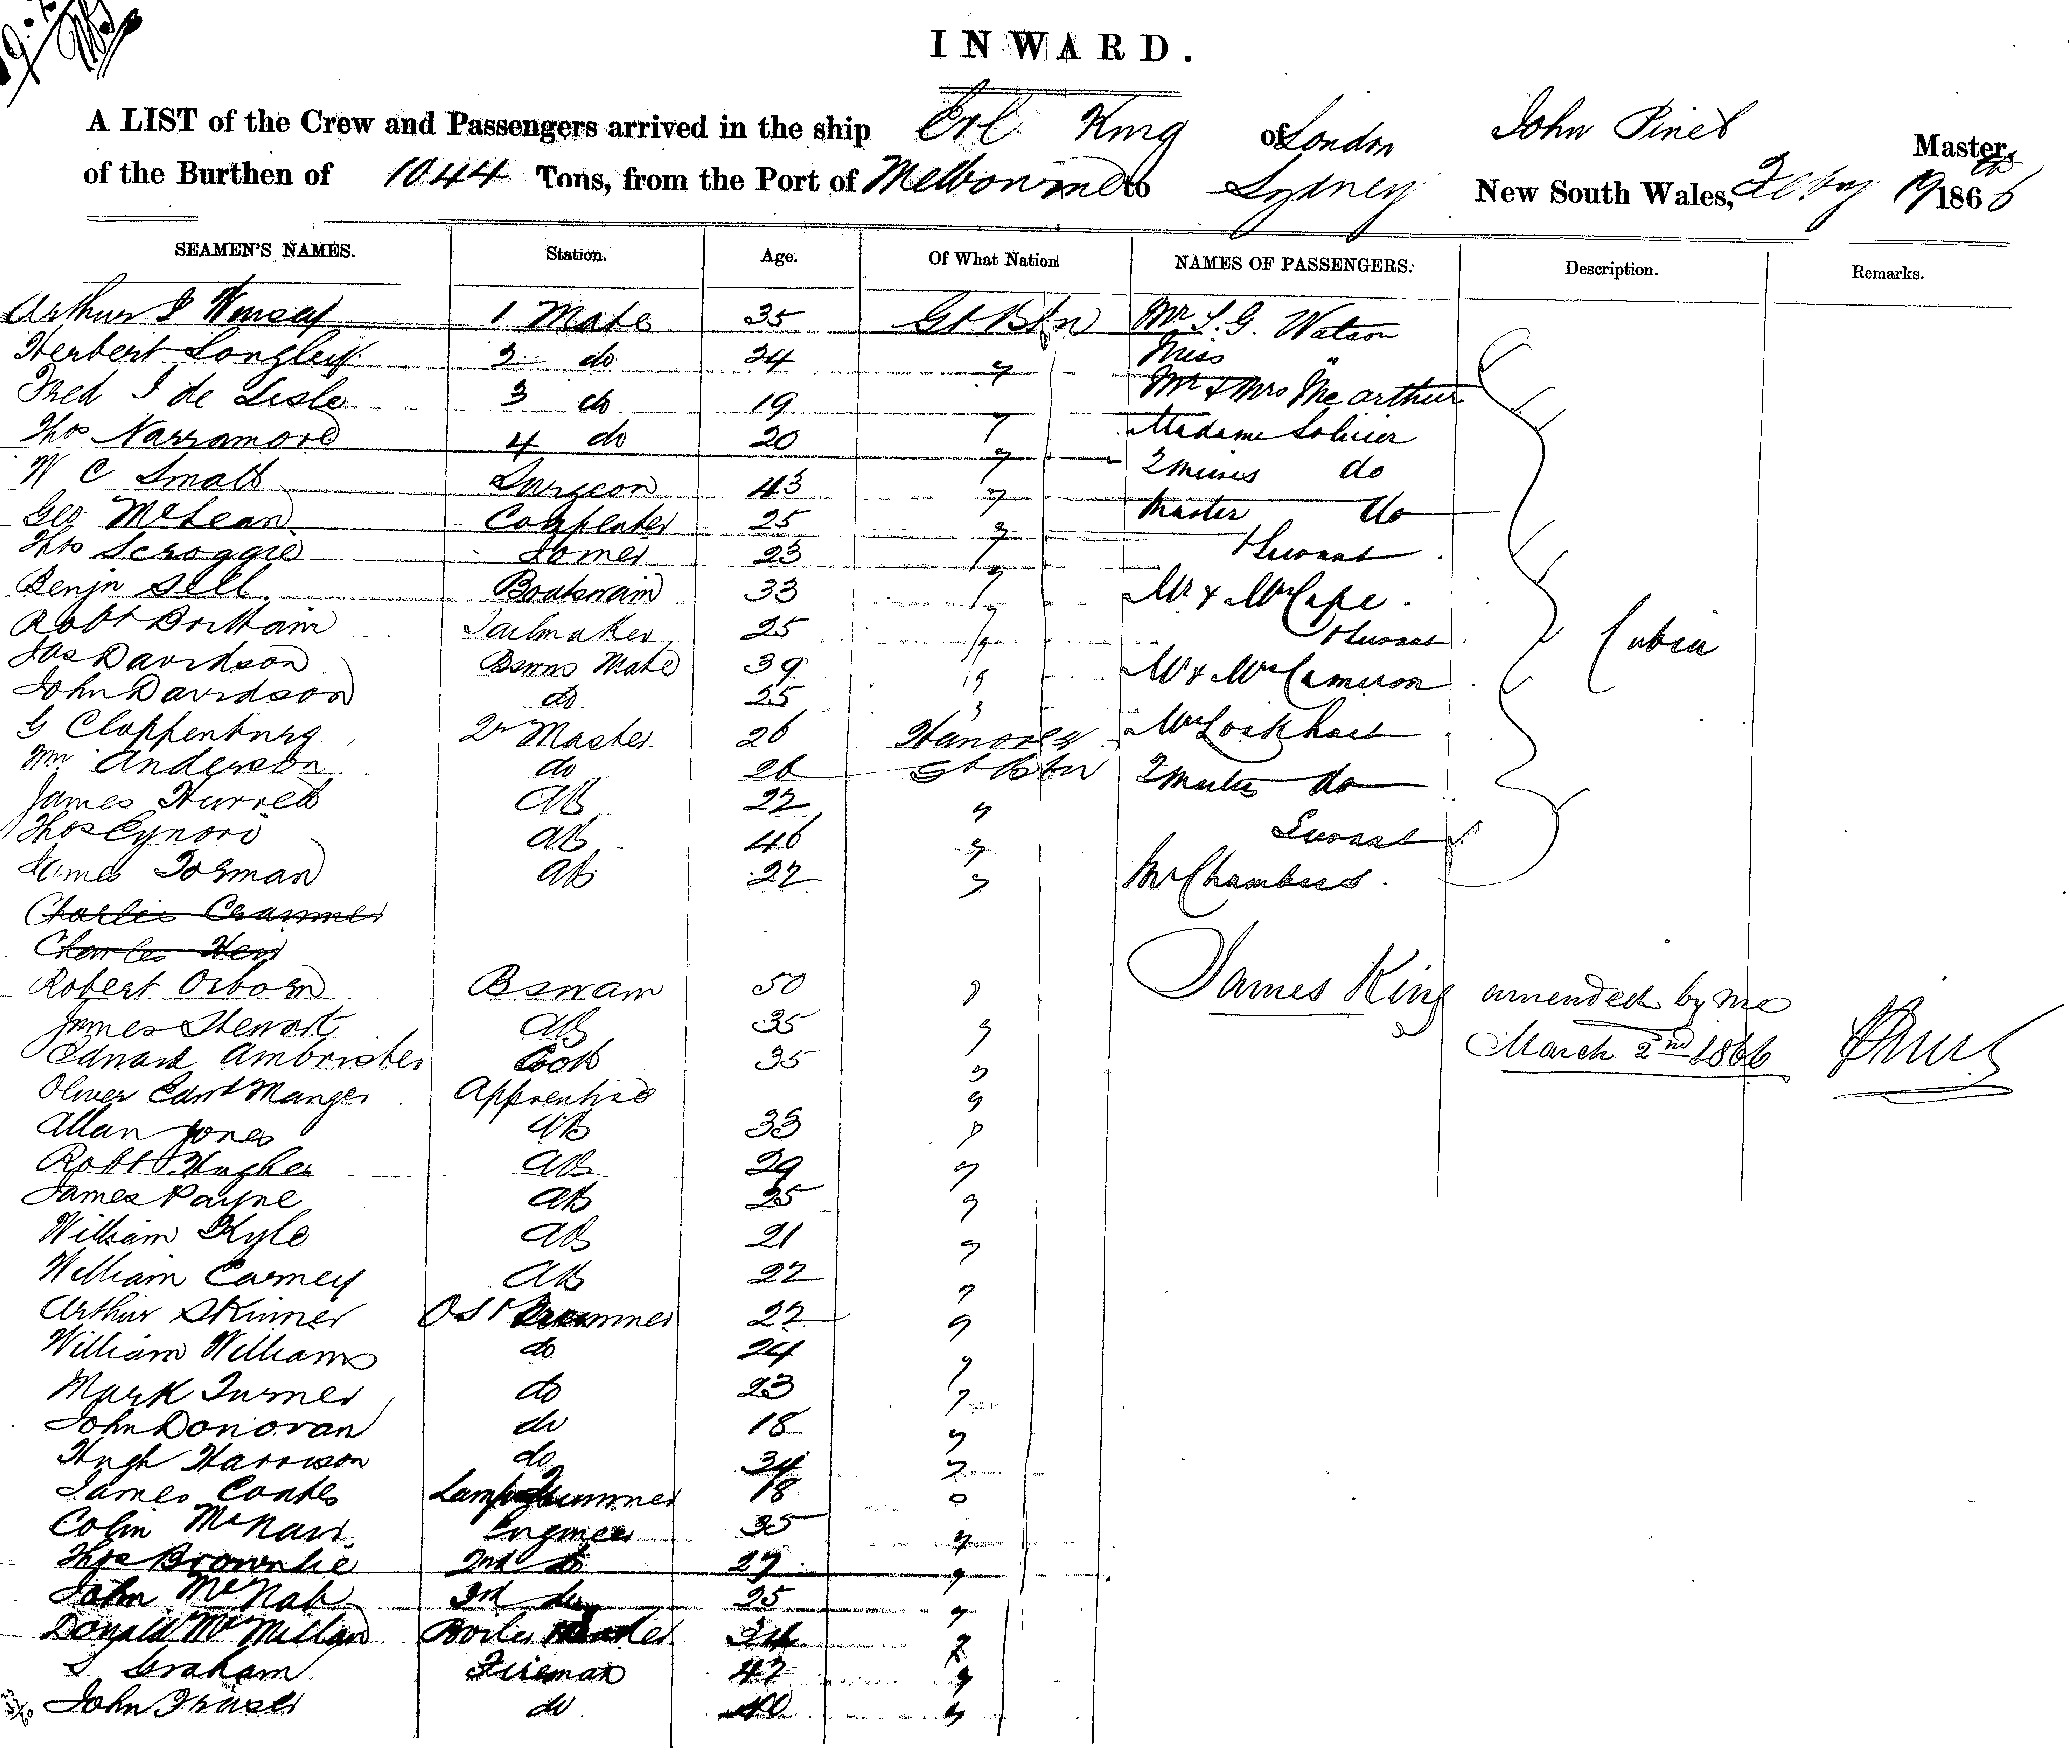 INWARD.
A LIST of the Crew and Passengers arrived in the ship Erl King of London John Pinel Master,
of the Burthen of 1044 Tons, from the Port of Melbourne to Sydney New South Wales, Feby 19th 1866
SEAMEN'S NAMES. Station. Age. Of What Nation NAMES OF PASSENGERS. Description. Remarks.
Arthur 1 Mate 35 Gt Btn Mr S. G. Watson
Herbert Longley 2 do 24 " Miss "
Fred I de Lisle 3 do 19 " Mr & Mrs McArthur
Thos Narramore 4 do 20 " Madame
W C Small Surgeon 43 " 2 Misses do
Geo McLean Carpenter 25 " Master do
Thos Scroggie Joiner 23 " & Servant
Benjn Sell Boatswain 33 " Mr & Mrs Cape
Robt Brittain Sailmaker 25 " & Servant Cabin
Jas Davidson Bswns Mate 39 " Mr & Mrs Cameron
John Davidson do 25 "
G Cloppenburg Qr Master 26 Hanover Mrs Lockhart
Wm Anderson do 26 Gt Btn 2 Masters do
James Hurrell AB 22 "
Thos AB 46 " Servant
James Dorman AB 22 " Mr Chambers
Charlie Cranmer
Charles
Robert Osborn Bswain 50 " James King amended by me
James Stewart AB 35 "
Edward Ambrister Cook 35 " March 2nd 1866
Oliver Edwd Manger Apprentice "
Allan Jones AB 33 "
Robt Hughes AB 29 "
James Payne AB 25 "
William Kyle AB 21 "
William Carney AB 22 "
Arthur Skinner OS & Trimmer 22 "
William Williams do 24 "
Mark Turner do 23 "
John Donovan do 18 "
Hugh Harrison do 34 "
James Coates Lamp Trimmer 18 "
Colin McNair Engineer 35 "
Thos Brownlie 2nd do 27 "
John McNab 3rd do 25 "
Donald McMillan Boiler 34 "
Graham Fireman 42 "
John Fraser do 40 "